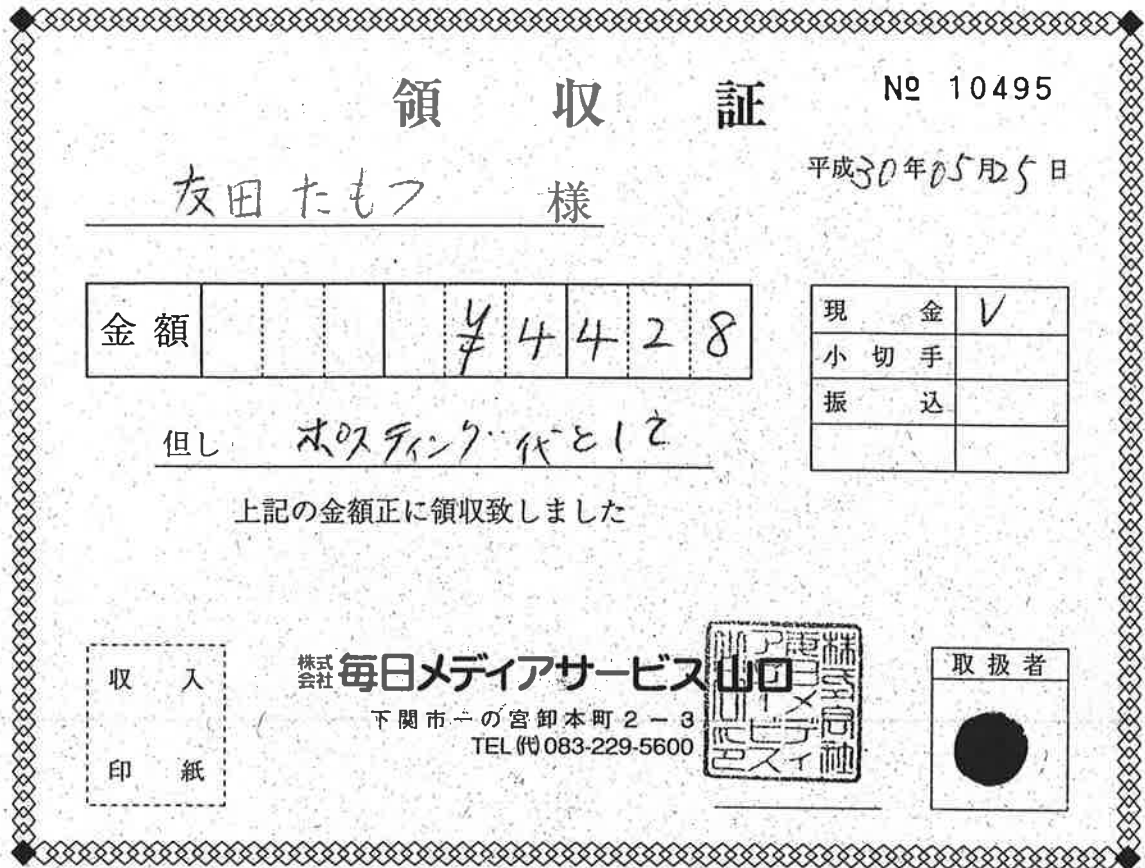 領収証
№ 10495
平成30年05月25日
友田たもつ 様
金額 ¥4428
現金 V
小切手
振込
但し ポスティング代として
上記の金額正に領収致しました
収入
印紙
株式会社 毎日メディアサービス山口
下関市一の宮卸本町2-3
TEL(代)083-229-5600
取扱者